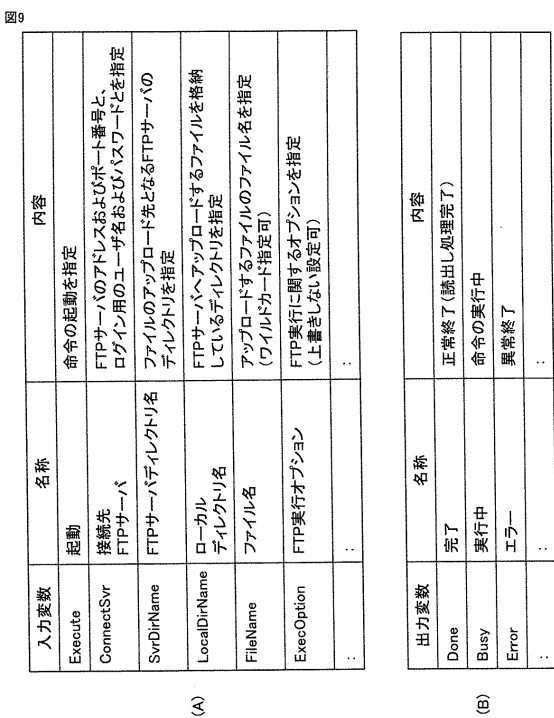 図9
(A)
入力変数 名称 内容
Execute 起動 命令の起動を指定
ConnectSvr 接続先
FTPサーバ FTPサーバのアドレスおよびポート番号と、
ログイン用のユーザ名およびパスワードとを指定
SvrDirName FTPサーバディレクトリ名 ファイルのアップロード先となるFTPサーバの
ディレクトリを指定
LocalDirName ローカル
ディレクトリ名 FTPサーバへアップロードするファイルを格納
しているディレクトリを指定
FileName ファイル名 アップロードするファイルのファイル名を指定
(ワイルドカード指定可)
ExecOption FTP実行オプション FTP実行に関するオプションを指定
(上書きしない設定可)
: : :
(B)
出力変数 名称 内容
Done 完了 正常終了(読出し処理完了)
Busy 実行中 命令の実行中
Error エラー 異常終了
: : :